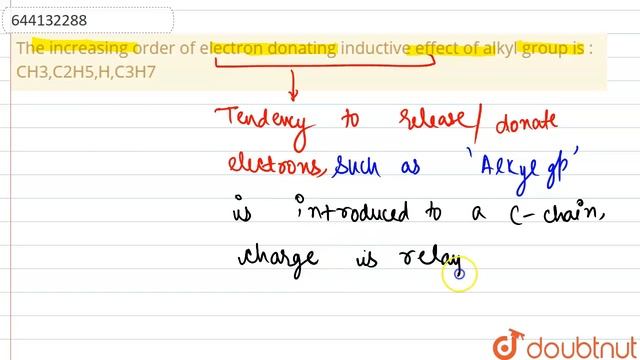 644132288
The increasing order of electron donating inductive effect of alkyl group is :
CH3,C2H5,H,C3H7
Tendency to release/ donate
electrons, such as 'Alkyl gp'
is introduced to a C-chain,
charge is relay
doubtnut